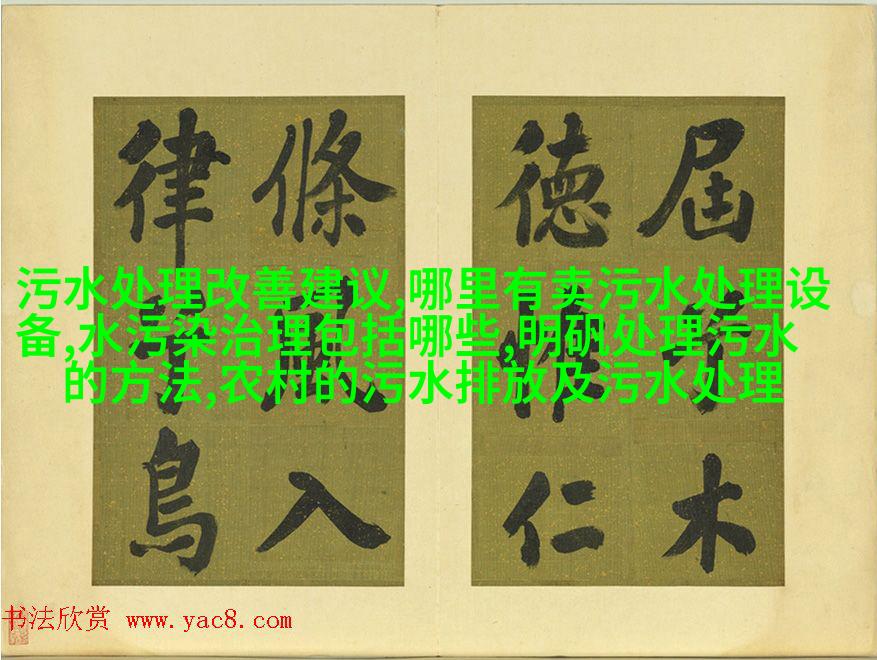 屆木
德仁
條風入
律鳥
污水处理改善建议,哪里有卖污水处理设
备,水污染治理包括哪些,明矾处理污水
的方法,农村的污水排放及污水处理
书法欣赏 www.yac8.com